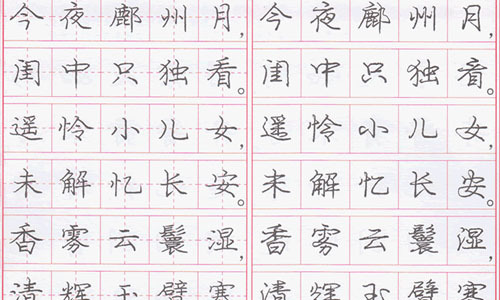 今夜鄜州月，
闺中只独看。
遥怜小儿女，
未解忆长安。
香雾云鬟湿，
清辉玉臂寒
今夜鄜州月，
闺中只独看。
遥怜小儿女，
未解忆长安。
香雾云鬟湿，
清辉玉臂寒